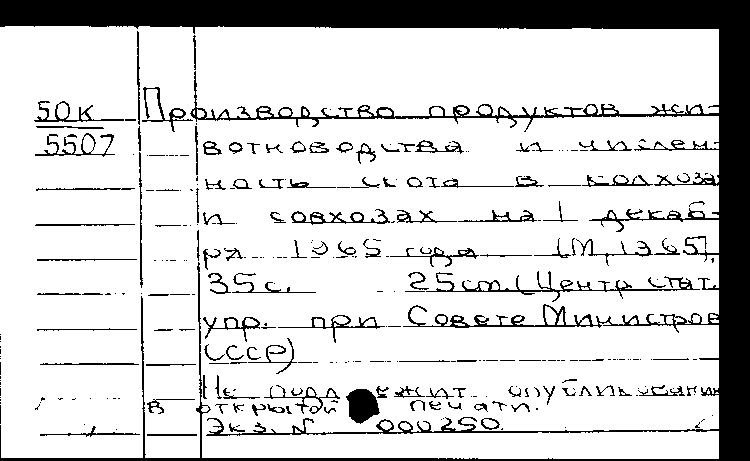 50К Производство продуктов жи-
5507 вотноводства и числен-
ность скота в колхоза
и совхозах на 1 декаб-
ря 1965 года [М, 1965],
35с. 25см. (Центр. стат.
упр. при Совете Министров
СССР)
Не подлежит опубликованию
в открытой печати.
Экз. N 000250